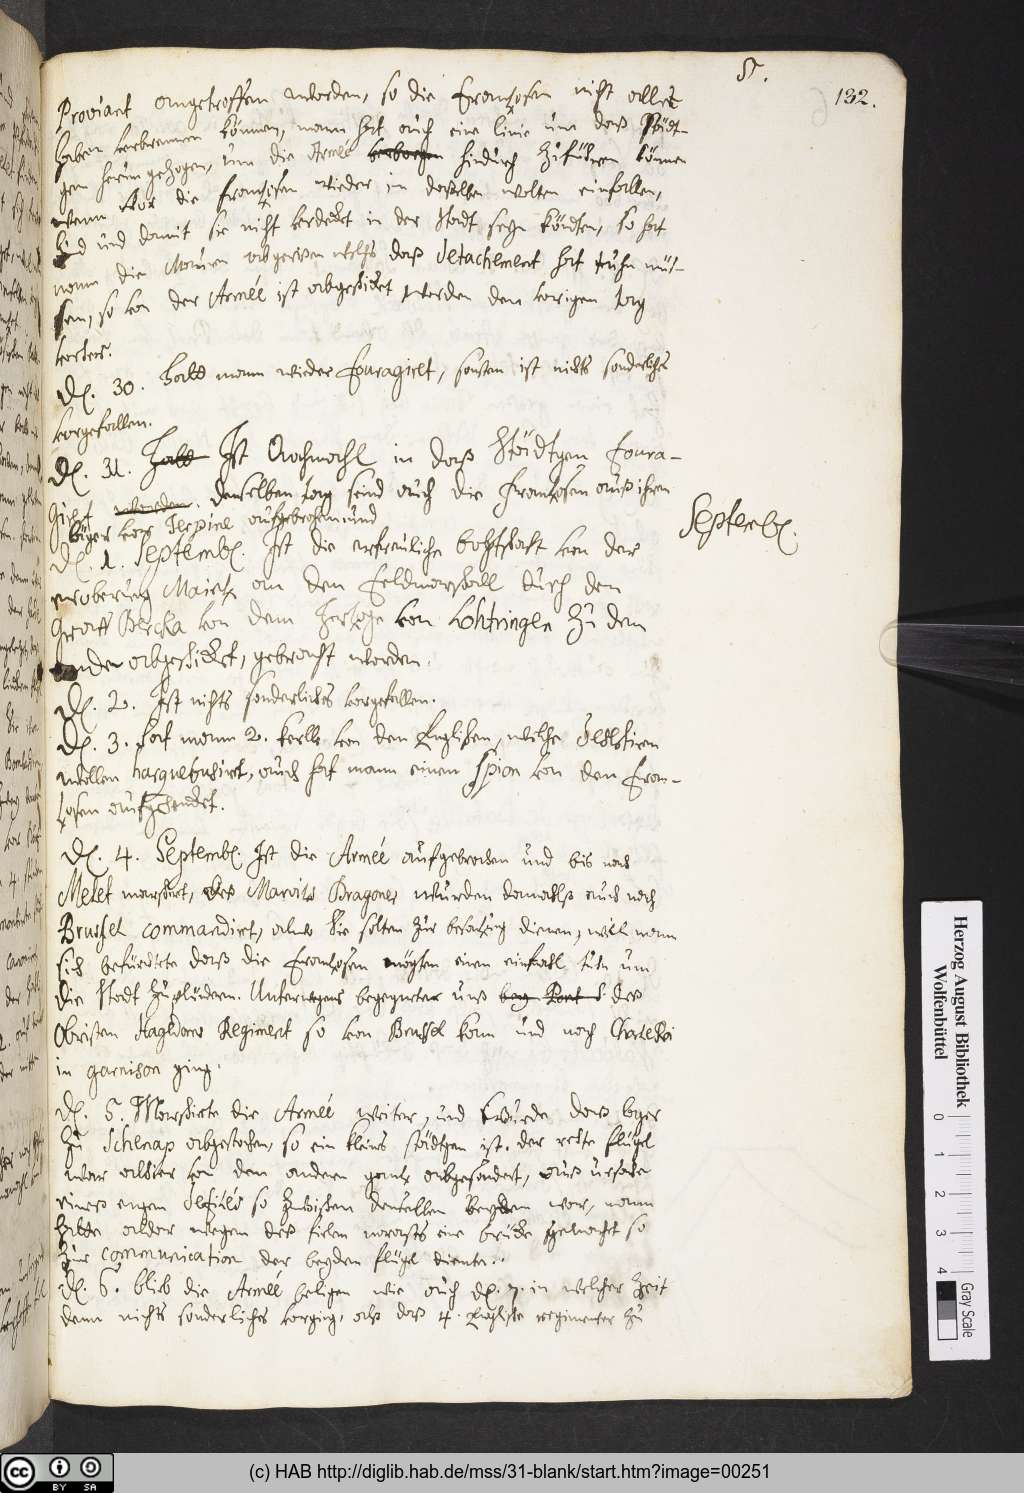 5.
132.
Proviant angetroffen worden, so die Franzosen nicht alles
haben verbrennen können, mann hat auch eine linie um daß Städt-
gen herum gezogen, um die Armée hindurch zu führen können
wenn die Franzosen wieder in daßelbe wolten einfallen,
und damit sie nicht bedeckt in der Stadt seyn köndten, so hat
mann die Mauren abgerißen welches daß detachement hat thun müs-
sen, so von der Armée ist abgeschicket worden den vorigen tag
vorhero.
D. 30. Hatt mann wieder fouragiert, sonsten ist nichts sonderliches
vorgefallen.
D. 31. Hatt Ist Nachmahl in daß Städtgen foura-
girt worden. denselben tag seind auch die Franzosen auß ihren
läger von Jerpine aufgebrochen und
D. 1. Septemb. Ist die erfreuliche bohtschaft von der
eroberung Maintz an den Feldmarschall durch den
Graff Bercka von dem Hertzoge von Lohtringen zu dem
ende abgeschicket, gebracht worden.
D. 2. Ist nichts sonderliches vorgefallen.
D. 3. hat mann 2. kerlls von den Englischen, welche desertiren
wollen harquebusirt, auch hat mann einen spion von den Fran-
zosen aufgehencket.
D. 4. Septemb. Ist die Armée aufgebrochen und bis nach
Melet marchirt, des Marvits Dragoner wurden damahlß auch nach
Brussel commandirt, alwo Sie solten zur besatzung dienen, weil mann
sich befürchtete daß die Franzosen mögten einen einfall thun um
die Stadt zu plündern. Unterwegens begegneten unß des
Obristen Hagedorn Regiment so von Brussel kam und nach Charleroi
in garnison ging.
D. 5. Marchirte die Armée weiter, und wurde daß lager
zu Schenap abgestochen, so ein kleines städtgen ist. der rechte flügel
war alhier von dem anderen gantz abgesondert, auß ursache
eines engen defiles so zwischen denselben beyden war, mann
hatte alda wegen deß tiefen morasts eine brücke gemacht so
zur communication der beyden flügel diente.
D. 6. blieb die Armée beligen wie auch D. 7. in welcher Zeit
denn nichts sonderliches vorging, alß daß 4. Englische regimenter zu
Septemb.
Herzog August Bibliothek
Wolfenbüttel
0 1 2 3 4
Gray Scale
cc BY SA
(c) HAB http://diglib.hab.de/mss/31-blank/start.htm?image=00251